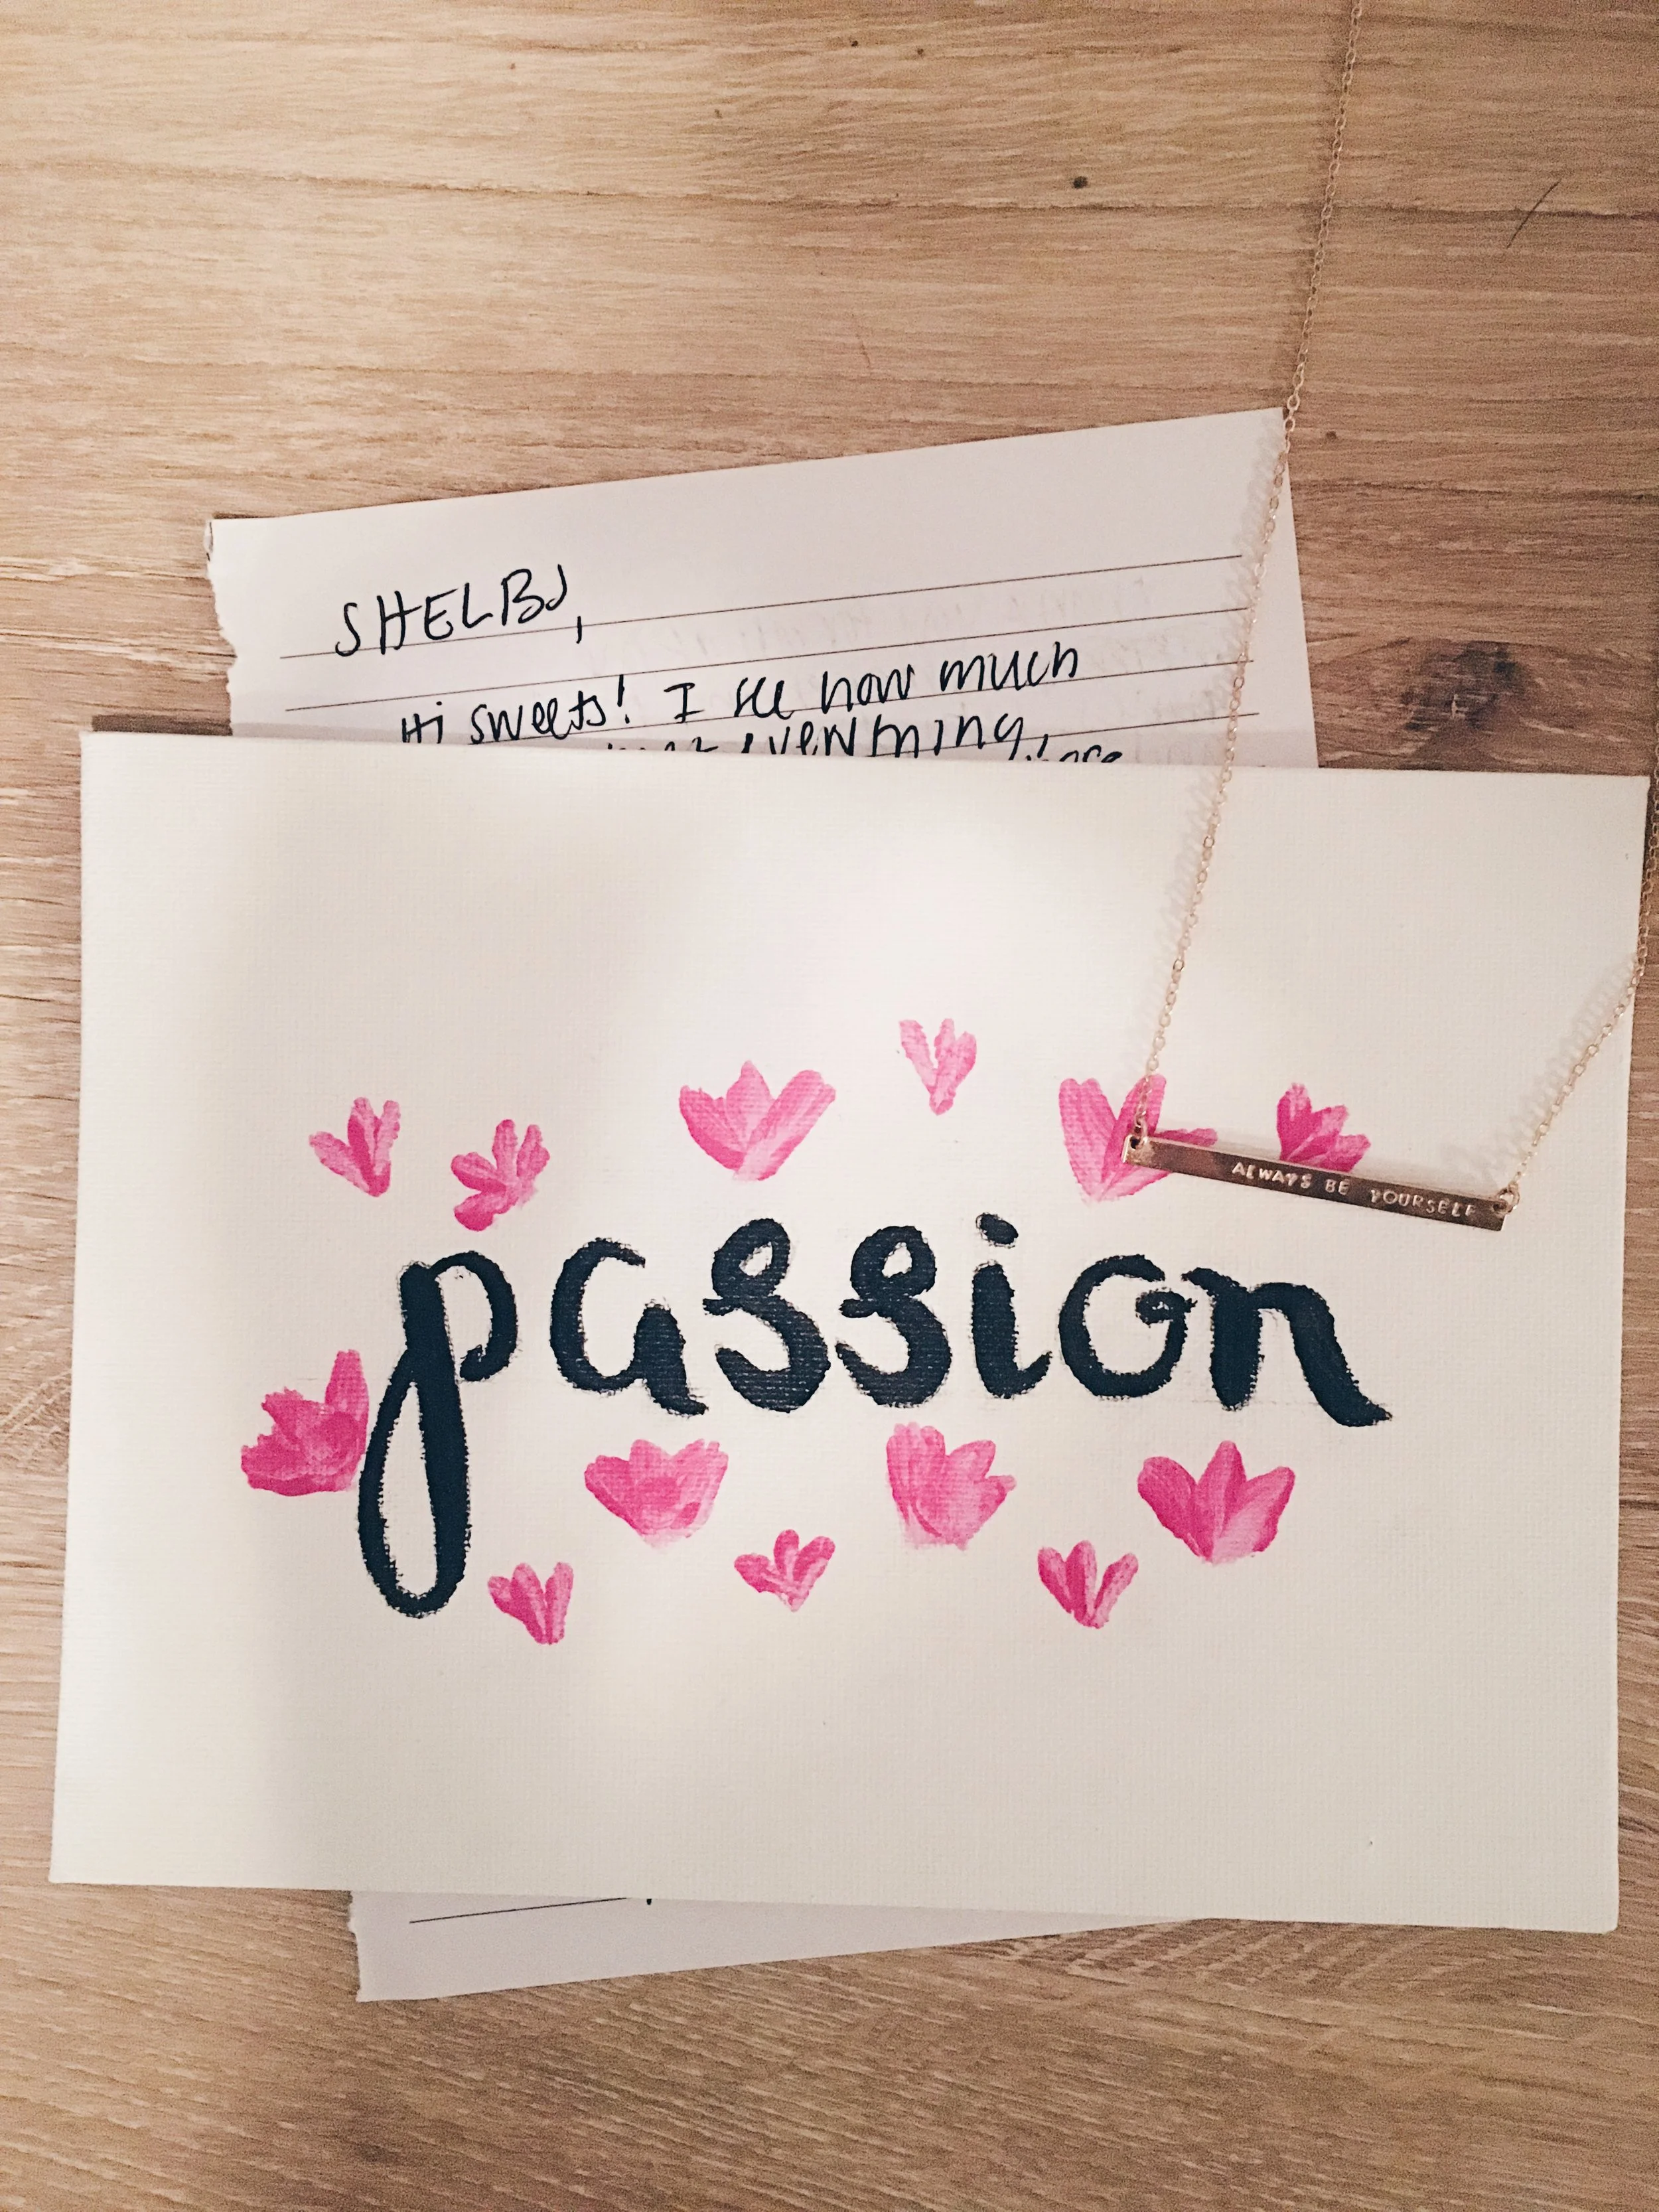 SHELBY,
Hi sweets! I see how much
everything,
ALWAYS BE YOURSELF
passion